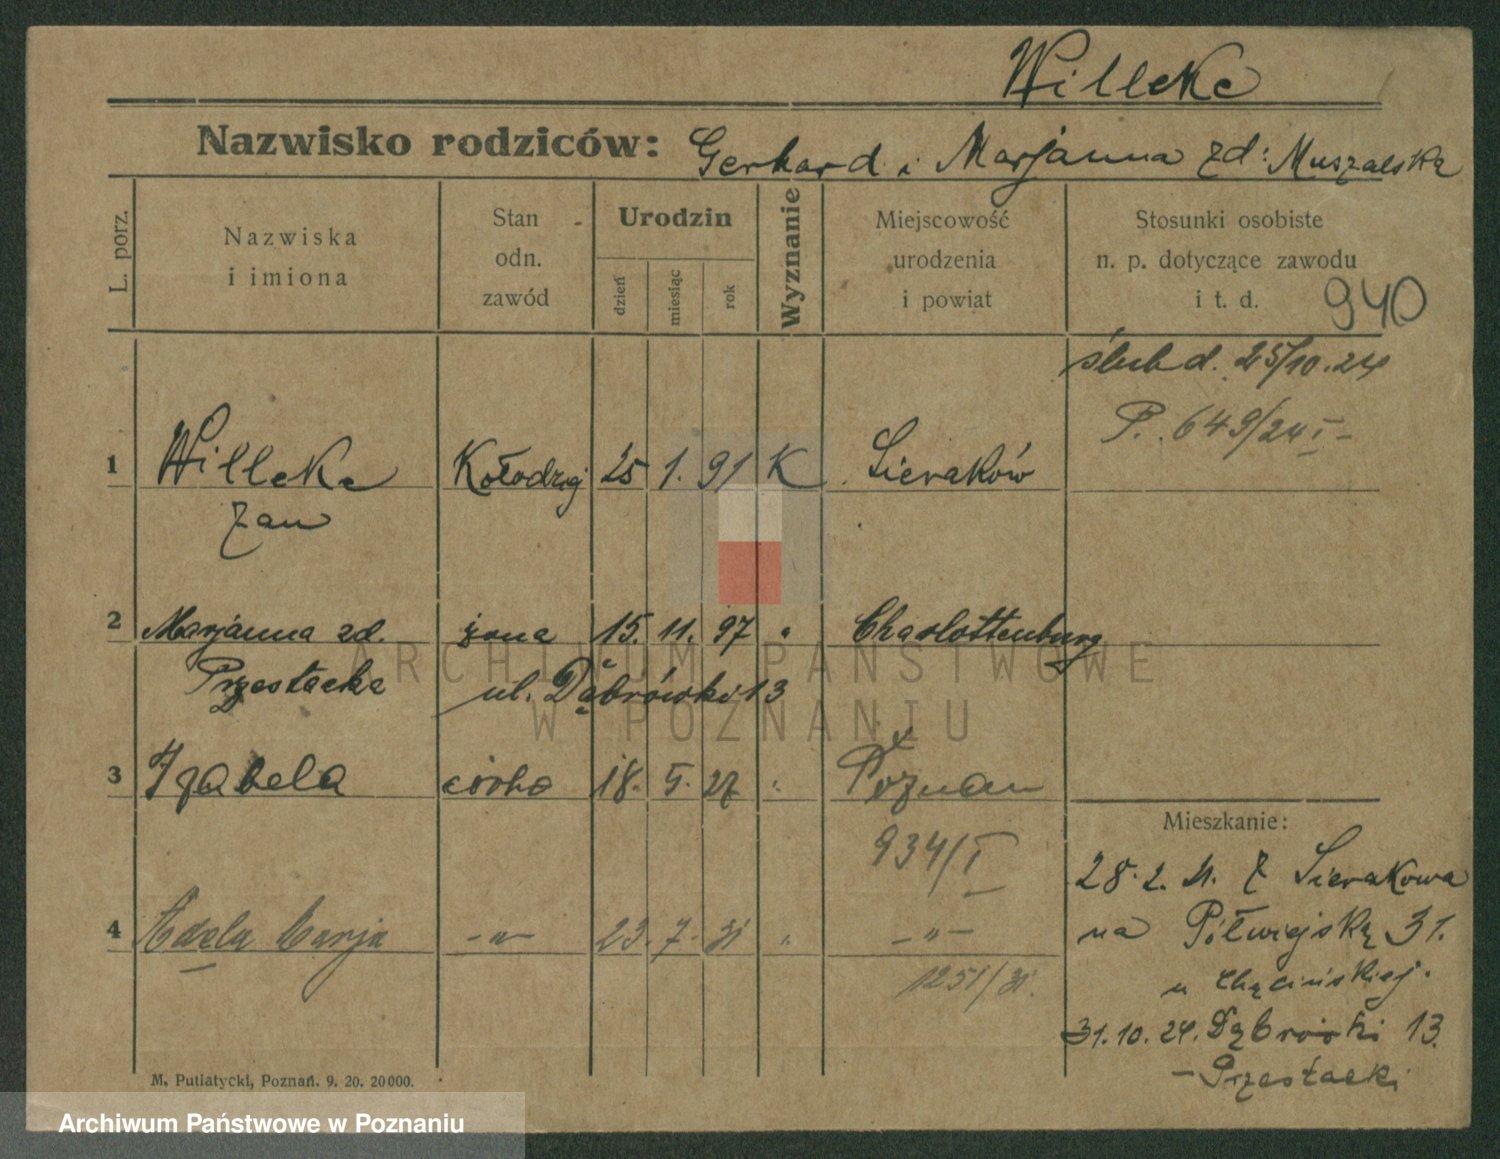 Willeke
Nazwisko rodziców: Gerhard i Marjanna zd: Muszalską
L. porz.
Nazwiska i imiona
Stan odn. zawód
Urodzin
dzień
miesiąc
rok
Wyznanie
Miejscowość urodzenia i powiat
Stosunki osobiste n. p. dotyczące zawodu i t. d.
940
ślub d. 25/10.24
P. 649/24 I-
1 Willeke Kołodziej 25 1. 91 K Sieraków
Jan
2 Marjanna zd. żona 15. 11. 97 " Charlottenburg
Przestacka ul. Dąbrówki 13
3 Izabela córka 18. 5. 27 " Poznań
934/I
Mieszkanie:
28. 2. 21. Z Sierakowa
4 Adela Marja -"- 23. 7. 31 " -"-
na Półwiejską 31.
1251/31.
u Chęcińskiej.
31. 10. 24. Dąbrówki 13.
- Przestacki
M. Putiatycki, Poznań. 9. 20. 20000.
ARCHIWUM PAŃSTWOWE
W POZNANIU
Archiwum Państwowe w Poznaniu